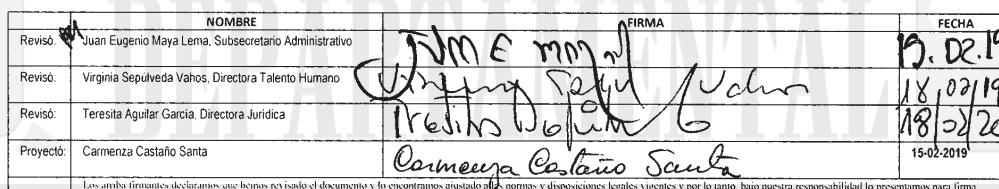 DEPARTAMENTAL
NOMBRE FIRMA FECHA
Revisó. Juan Eugenio Maya Lema, Subsecretario Administrativo 19.02.19
Revisó: Virginia Sepúlveda Vahos, Directora Talento Humano 18/02/19
Revisó: Teresita Aguilar García, Directora Jurídica 18/02/20
Proyectó: Carmenza Castaño Santa Carmenza Castaño Santa 15-02-2019
Los arriba firmantes declaramos que hemos revisado el documento y lo encontramos ajustado a las normas y disposiciones legales vigentes y por lo tanto, bajo nuestra responsabilidad lo presentamos para firma